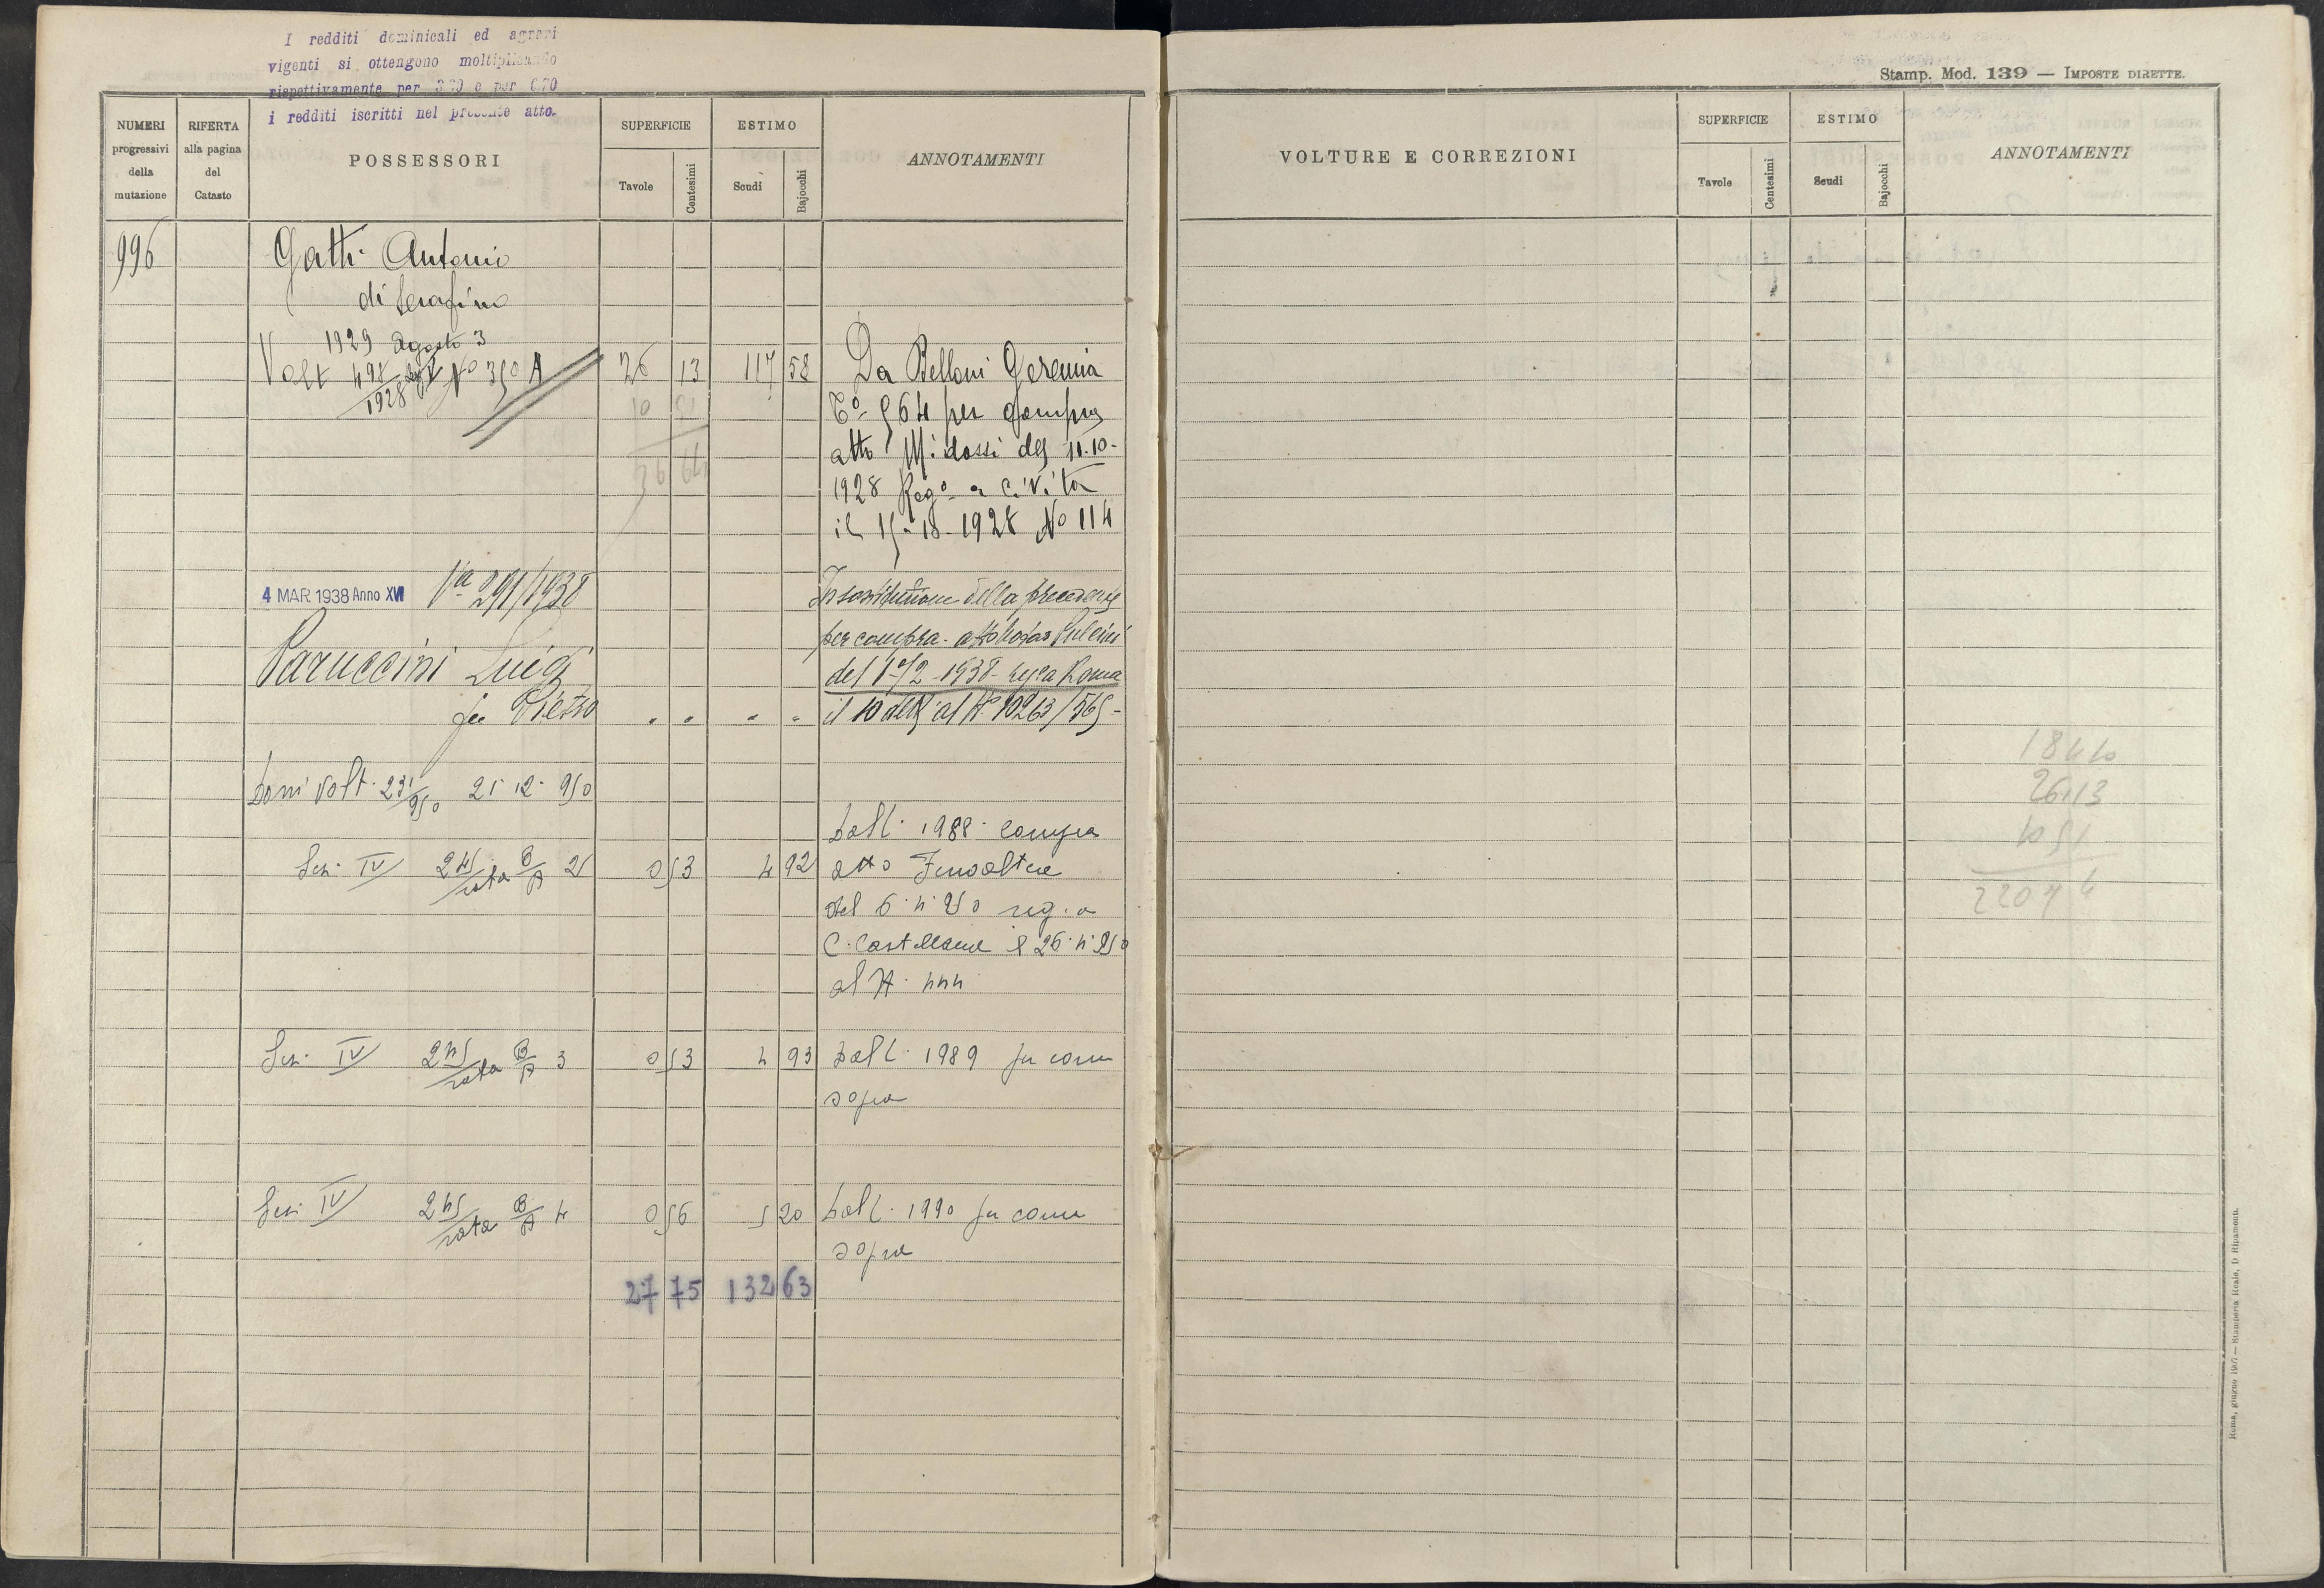 I redditi dominicali ed agrari
vigenti si ottengono moltiplicando
rispettivamente per 3.20 e per 0.70
i redditi iscritti nel presente atto.
NUMERI progressivi della mutazione
RIFERTA alla pagina del Catasto
POSSESSORI
SUPERFICIE
Tavole
Centesimi
ESTIMO
Scudi
Bajocchi
ANNOTAMENTI
996
Gatti Antonio
di Serafino
1929 Agosto 3
Volt 498/1928 No 350 A 26 13 117 58 Da Belloni Geremia
10 51
Co 564 per compra
36 64
atto Midossi del 11.10-
1928 Rego a Civita
il 15-18-1928 No 114
4 MAR 1938 Anno XVI Va 291/1938
In sostituzione della precedente
per compra. atto Notar Pulcini
Paruccini Luigi
del 1-/2-1938- reg a Roma
fu Pietro " " " " il 10 detto al No 10263/565-
Domi Volt. 231/950 21.12.950
Dall. 1988. compra
Sez. IV 245/rata B/A 2 0 53 4 92 atto Fenoaltea
del 6.4.950 reg. a
C. Castellana il 26.4.950
al N. 444
Sez. IV 245/rata B/A 3 0 53 4 93 Dall. 1989 per come
sopra
Sez. IV 245/rata B/A 4 0 56 5 20 Dall. 1990 per come
sopra
27 75 132 63
Stamp. Mod. 139 — IMPOSTE DIRETTE.
VOLTURE E CORREZIONI
SUPERFICIE
Tavole
Centesimi
ESTIMO
Scudi
Bajocchi
ANNOTAMENTI
184 10
26 13
10 51
220 74
Roma, giugno 1927 — Stamperia Reale, D Ripamonti.